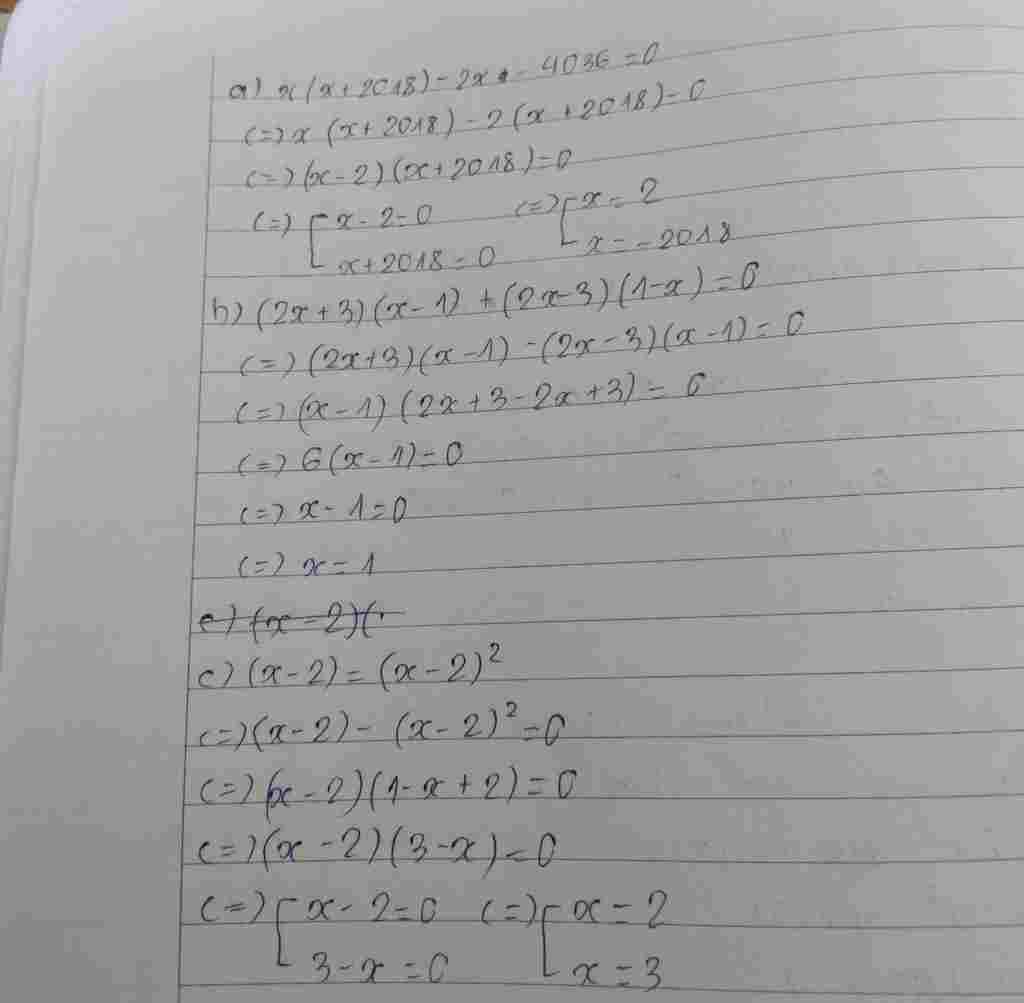 a) x(x+2018) - 2x - 4036 = 0
(=) x (x+2018) - 2(x+2018) = 0
(=) (x-2)(x+2018) = 0
(=) [ x-2=0 (=) [ x = 2
x+2018=0 x = -2018
b) (2x+3)(x-1) + (2x-3)(1-x) = 0
(=) (2x+3)(x-1) - (2x-3)(x-1) = 0
(=) (x-1)(2x+3-2x+3) = 0
(=) 6(x-1)=0
(=) x-1=0
(=) x=1
c) (x-2)=(x-2)²
(=) (x-2) - (x-2)² = 0
(=) (x-2)(1-x+2) = 0
(=) (x-2)(3-x) = 0
(=) [ x-2=0 (=) [ x=2
3-x=0 x=3